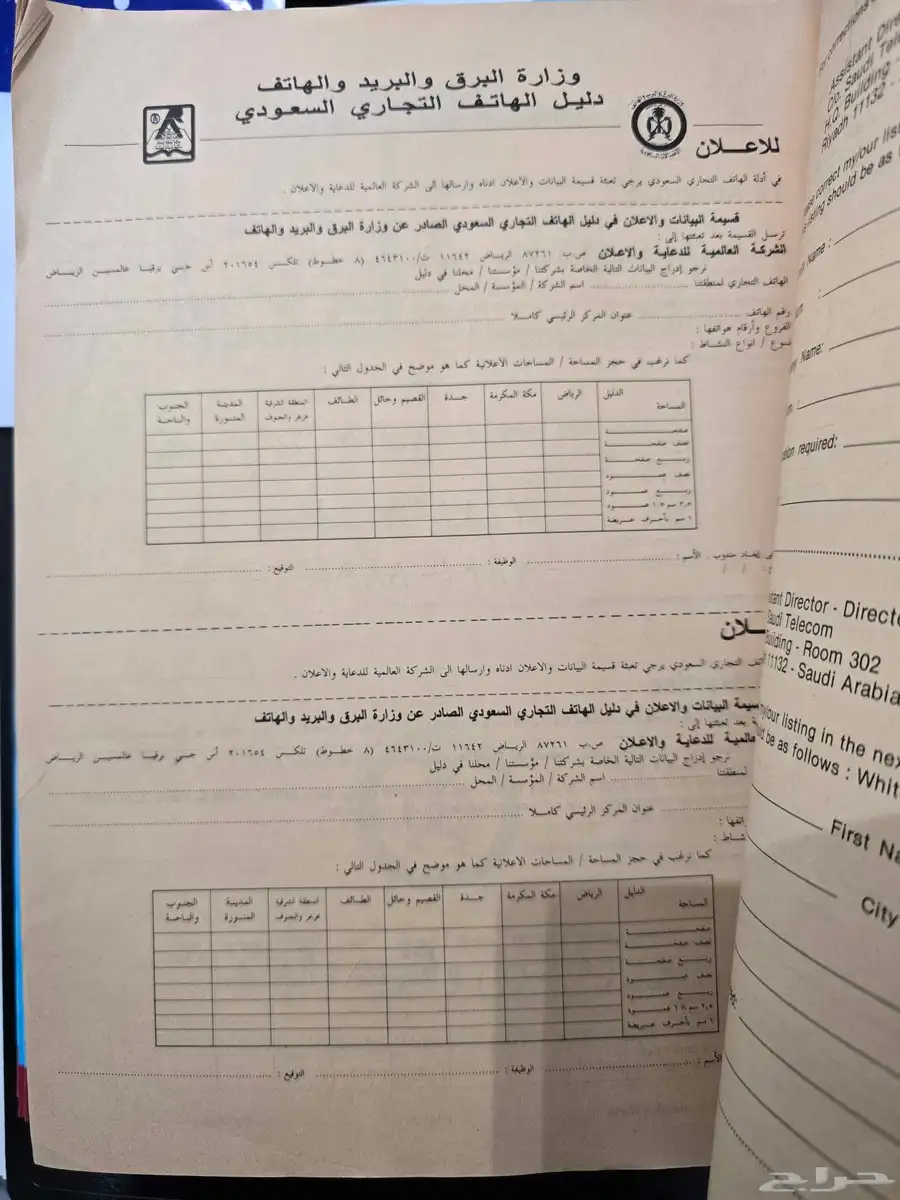 وزارة البرق والبريد والهاتف
دليل الهاتف التجاري السعودي
للاعلان
في أدلة الهاتف التجاري السعودي يرجي تعبئة قسيمة البيانات والأعلان ادناه وارسالها الى الشركة العالمية للدعاية والاعلان .
قسيمة البيانات والاعلان في دليل الهاتف التجاري السعودي الصادر عن وزارة البرق والبريد والهاتف
ترسل القسيمة بعد تعبئتها إلى :
الشركة العالمية للدعاية والاعلان ص.ب ٨٧٢٦١ الرياض ١١٦٤٢ ت/٤٦٤٣١٠٠ (٨ خطوط) تلكس ٢٠١٦٥٤ أس جسي برقيا عالمسين الرياض
نرجو إدراج البيانات التالية الخاصة بشركتنا / مؤسستنا / محلنا في دليل
الهاتف التجاري لمنطقتنا ........ اسم الشركة / المؤسسة / المحل ........
رقم الهاتف ........ عنوان المركز الرئيسي كاملا ........
الفروع وأرقام هواتفها :
نوع / انواع النشاط :
كما نرغب في حجز المساحة / المساحات الاعلانية كما هو موضح في الجدول التالي :
الدليل الرياض مكة المكرمة جدة القصيم وحائل الطائف المنطقة الشرقية عرعر والجوف المدينة المنورة الجنوب والباحة
المساحة
صفحة
نصف صفحة
ربع صفحة
نصف عمود
ربع عمود
٢,٥ سم × ١ عمود
١ سم بأحرف عريضة
مندوب . الأسم : ........ الوظيفة : ........ التوقيع : ........
ـلان
التجاري السعودي يرجي تعبئة قسيمة البيانات والاعلان ادناه وارسالها الى الشركة العالمية للدعاية والاعلان .
سيمة البيانات والاعلان في دليل الهاتف التجاري السعودي الصادر عن وزارة البرق والبريد والهاتف
بعد تعبئتها إلى :
عالمية للدعاية والاعلان ص.ب ٨٧٢٦١ الرياض ١١٦٤٢ ت/٤٦٤٣١٠٠ (٨ خطوط) تلكس ٢٠١٦٥٤ أس جسي برقيا عالمسين الرياض
نرجو إدراج البيانات التالية الخاصة بشركتنا / مؤسستنا / محلنا في دليل
لمنطقتنا ........ اسم الشركة / المؤسسة / المحل ........
........ عنوان المركز الرئيسي كاملا ........
اتفها :
شاط :
كما نرغب في حجز المساحة / المساحات الاعلانية كما هو موضح في الجدول التالي :
الدليل الرياض مكة المكرمة جدة القصيم وحائل الطائف المنطقة الشرقية عرعر والجوف المدينة المنورة الجنوب والباحة
المساحة
صفحة
نصف صفحة
ربع صفحة
نصف عمود
ربع عمود
٢,٥ سم × ١ عمود
١ سم بأحرف عريضة
الأسم : ........ الوظيفة : ........ التوقيع : ........
For corrections
Assistant Dire
C/o. Saudi Tele
H.Q. Building -
Riyadh 11132 -
correct my/our list
listing should be as
Name :
Name:
required:
Director - Directo
Saudi Telecom
Building - Room 302
11132 - Saudi Arabia
your listing in the nex
be as follows : Whit
First Na
City
حراج